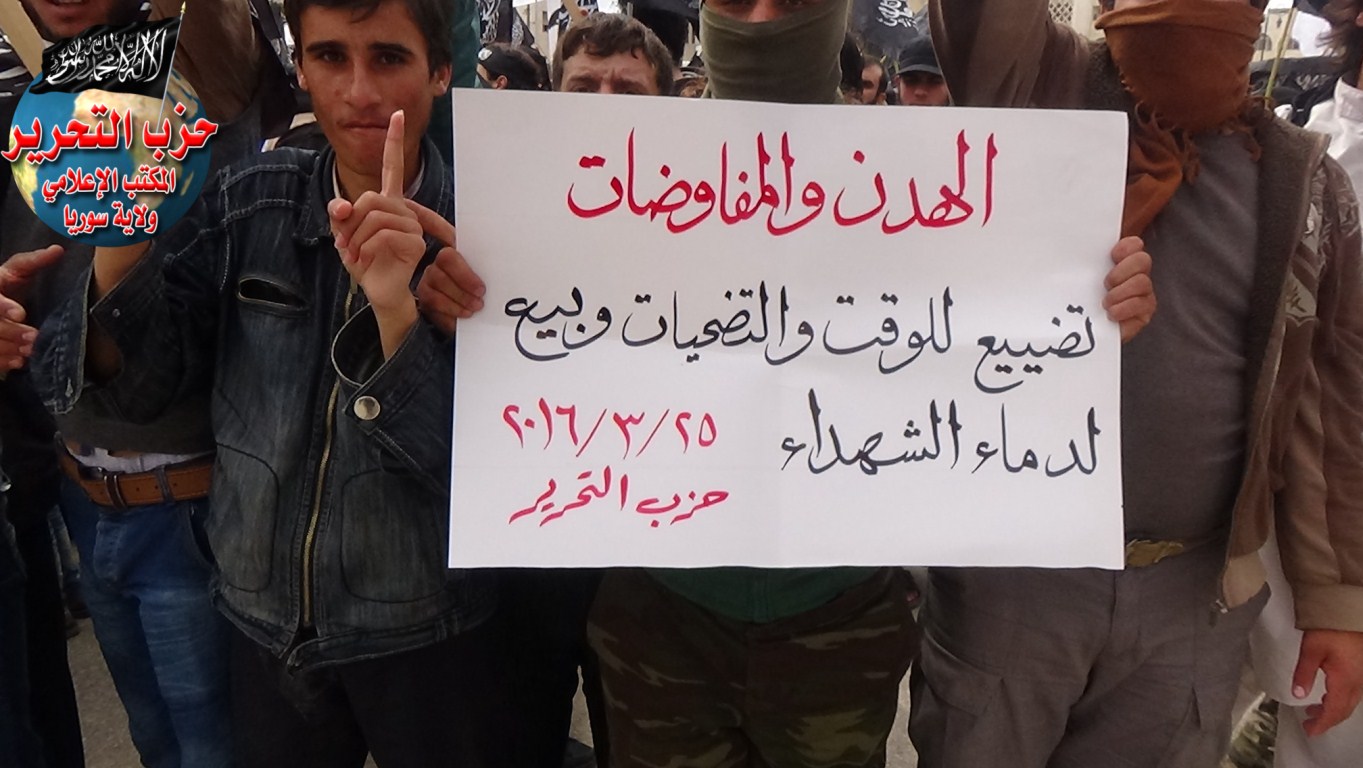 لا إله إلا الله محمد رسول الله
حزب التحرير
المكتب الإعلامي
ولاية سوريا
الهدن والمفاوضات
تضييع للوقت والتضحيات وبيع
لدماء الشهداء
٢٠١٦/٣/٢٥
حزب التحرير